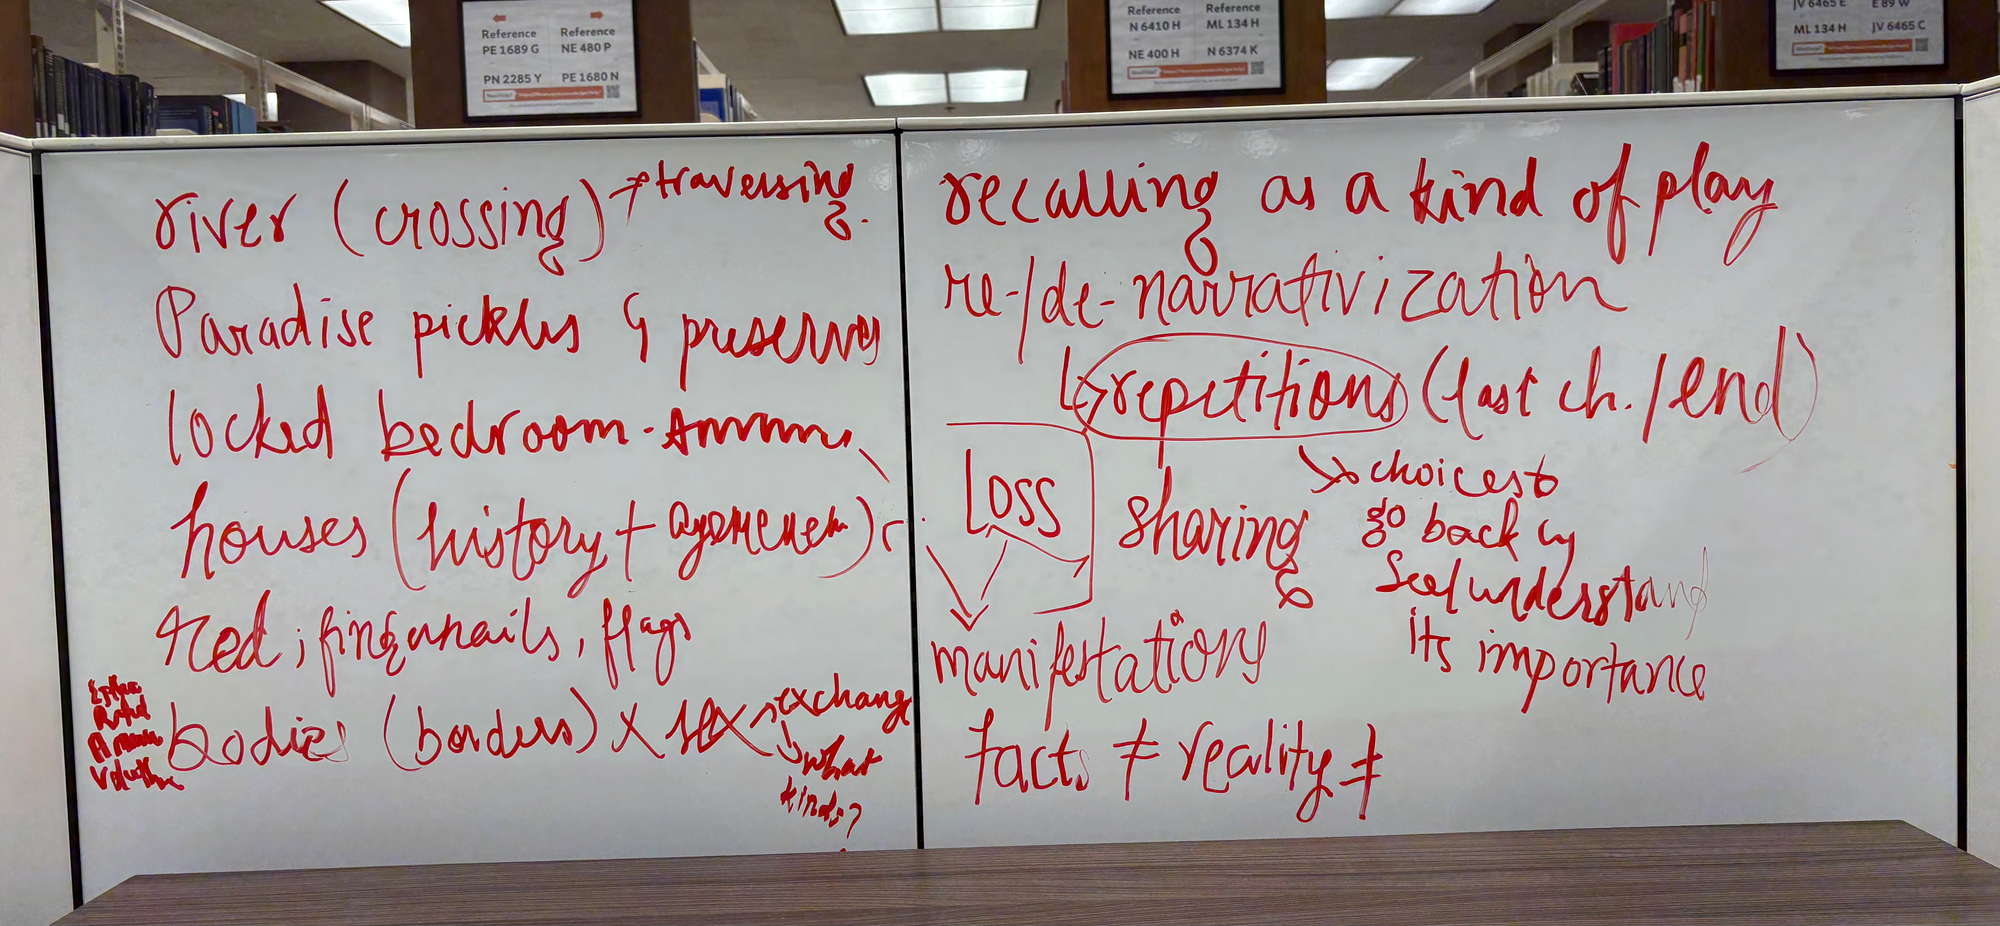 Reference Reference
PE 1689 G NE 480 P
PN 2285 Y PE 1680 N
Reference Reference
N 6410 H ML 134 H
NE 400 H N 6374 K
JV 6465 E E 89 W
ML 134 H JV 6465 C
river (crossing) → traversing
Paradise pickles & preserves
locked bedroom - Ammu
houses (history +
red ; fingernails, flags
bodies (borders) X sex → exchange
↳ what
kinds?
Estha
Rahel
Ammu
Velutha
recalling as a kind of play
re-/de-narrativization
↳ repetitions (last ch. / end)
Loss
sharing
→ choices to
go back
see/understand
its importance
manifestations
facts ≠ reality ≠